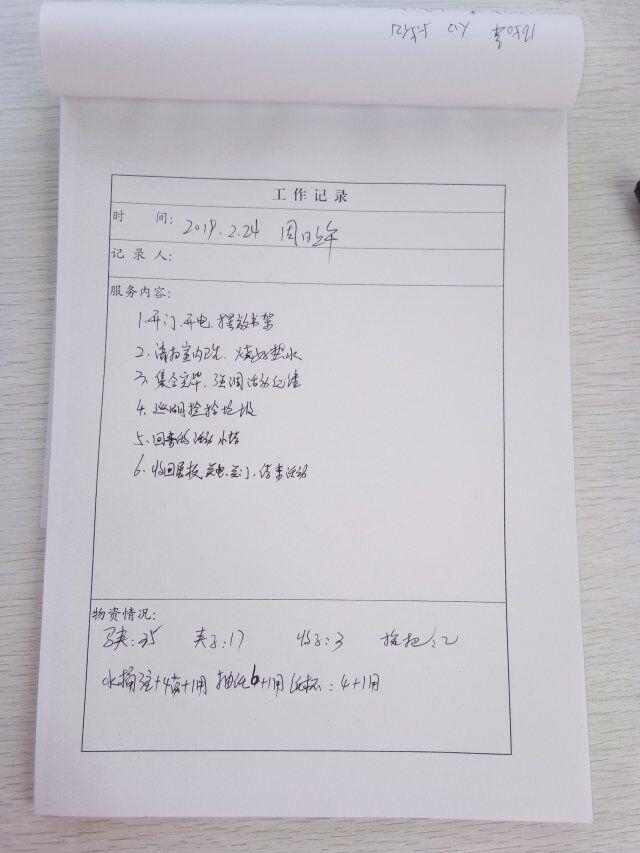 工作记录
时 间: 2019.2.24 周日上午
记 录 人:
服务内容:
1.开门、开电、摆放书架
2.清扫室内卫生、烧好热水
3.集合完毕、强调活动纪律
4.巡湖捡拾垃圾
5.回来的活动小结
6.收回展板、关电、关门、结束活动
物资情况:
马夹:35 夹子:17 :3 拖把:2
水桶 +4 +1用 抽纸6+1用 纸杯:4+1用